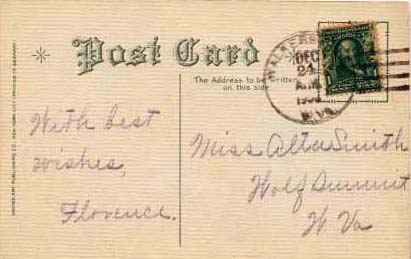 Post Card
The Address to be written
on this side
DEC
24
W.VA.
With best
wishes,
Florence.
Miss Alta Smith
Wolf Summit
W. Va